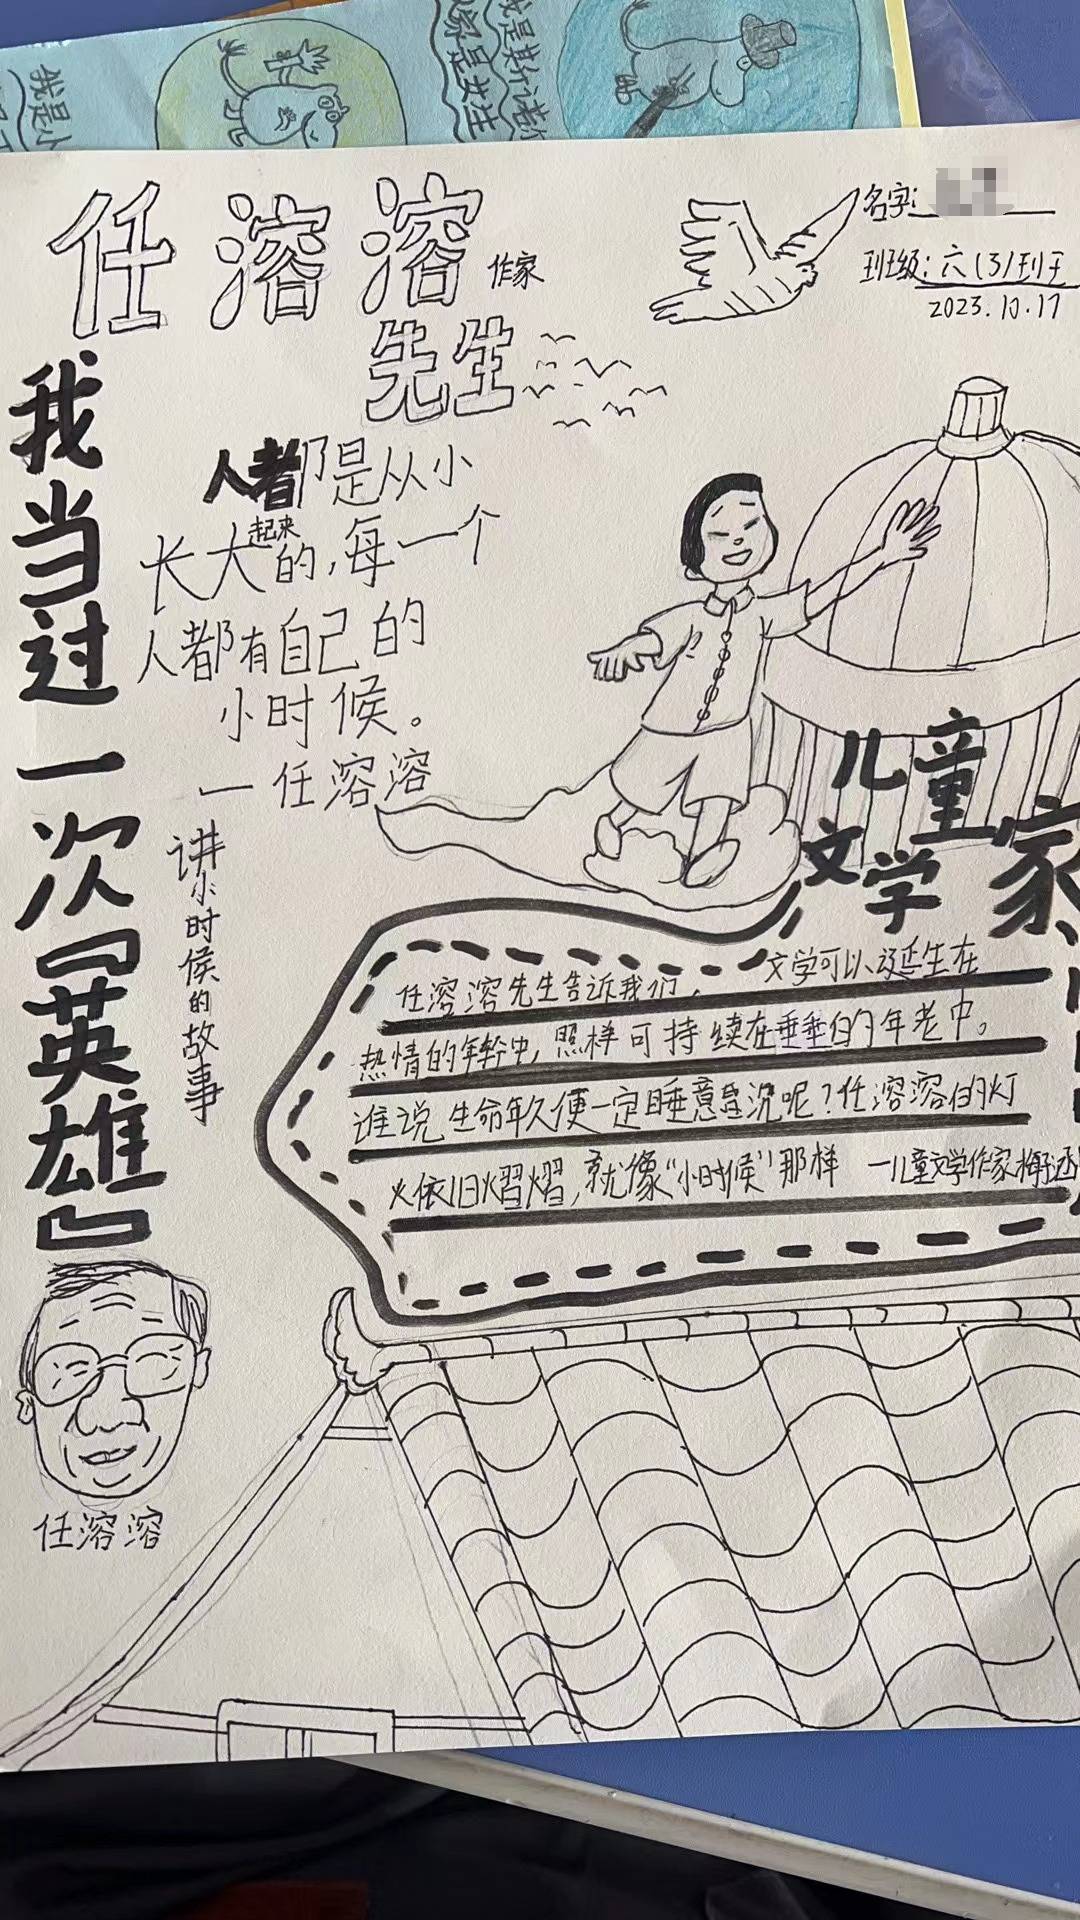 我是小
我是斯诺
家是史生
任溶溶 作家
先生
名字:
班级:六(3)班
2023.10.17
我当过一次『英雄』
人者都是从小
长大起来的,每一个
人都有自己的
小时候。
一任溶溶
讲小时候的故事
儿童
文学家
任溶溶先生告诉我们, 文学可以诞生在
热情的年龄中,照样可持续在垂垂的年老中。
谁说生命年久便一定睡意昏沉呢?任溶溶的灯
火依旧熠熠,就像“小时候”那样 一儿童文学作家梅子涵
任溶溶